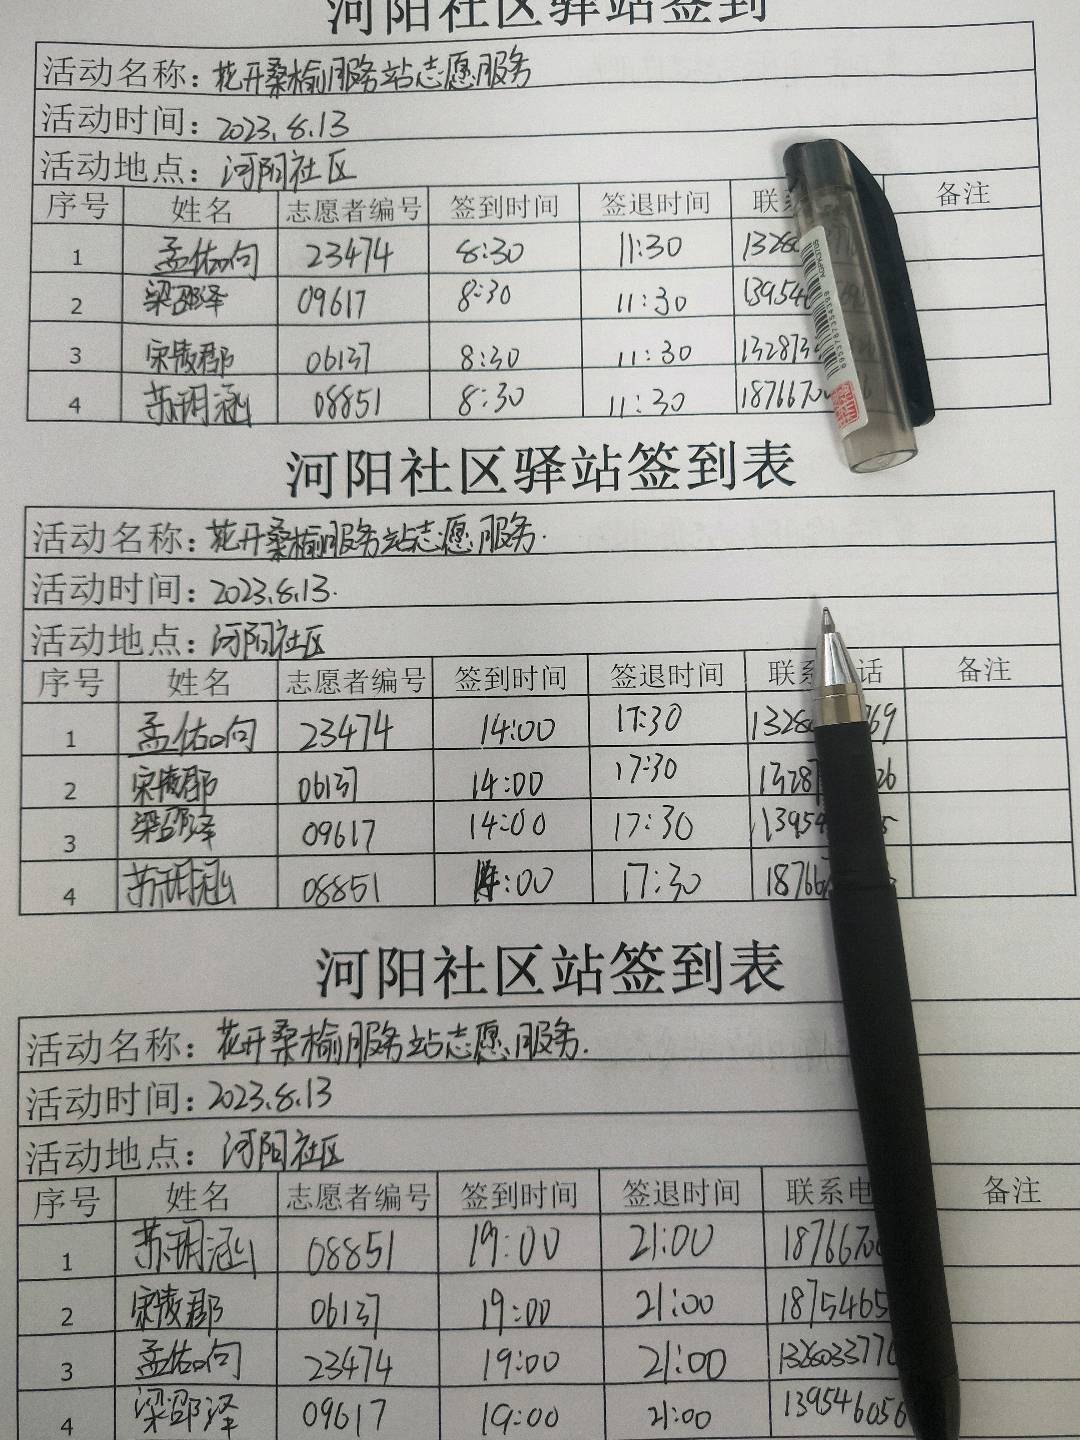 河阳社区驿站签到
活动名称：花开桑榆服务站志愿服务
活动时间：2023.8.13
活动地点：河阳社区
序号 姓名 志愿者编号 签到时间 签退时间 联系 备注
1 孟佑向 23474 8:30 11:30 13280
2 梁邵泽 09617 8:30 11:30 139546
3 宋陵郡 06137 8:30 11:30 132873
4 苏玥涵 08851 8:30 11:30 1876670
河阳社区驿站签到表
活动名称：花开桑榆服务站志愿服务.
活动时间：2023.8.13.
活动地点：河阳社区
序号 姓名 志愿者编号 签到时间 签退时间 联系 话 备注
1 孟佑向 23474 14:00 17:30 1328 69
2 宋陵郡 06137 14:00 17:30 13287 26
3 梁邵泽 09617 14:00 17:30 1395
4 苏玥涵 08851 :00 17:30 1876
河阳社区站签到表
活动名称：花开桑榆服务站志愿服务.
活动时间：2023.8.13
活动地点：河阳社区
序号 姓名 志愿者编号 签到时间 签退时间 联系电 备注
1 苏玥涵 08851 19:00 21:00 1876670
2 宋陵郡 06137 19:00 21:00 18754465
3 孟佑向 23474 19:00 21:00 132803377
4 梁邵泽 09617 19:00 21:00 139546056